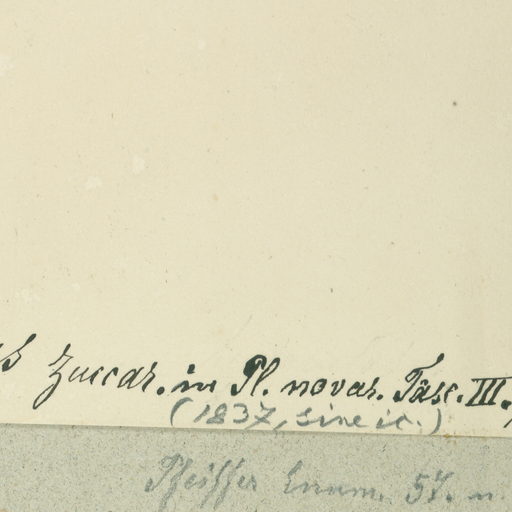 Zuccar. in Pl. novar. Fasc. III.
(1837, sine ic.)
Pfeiffer Enum. 57. n.